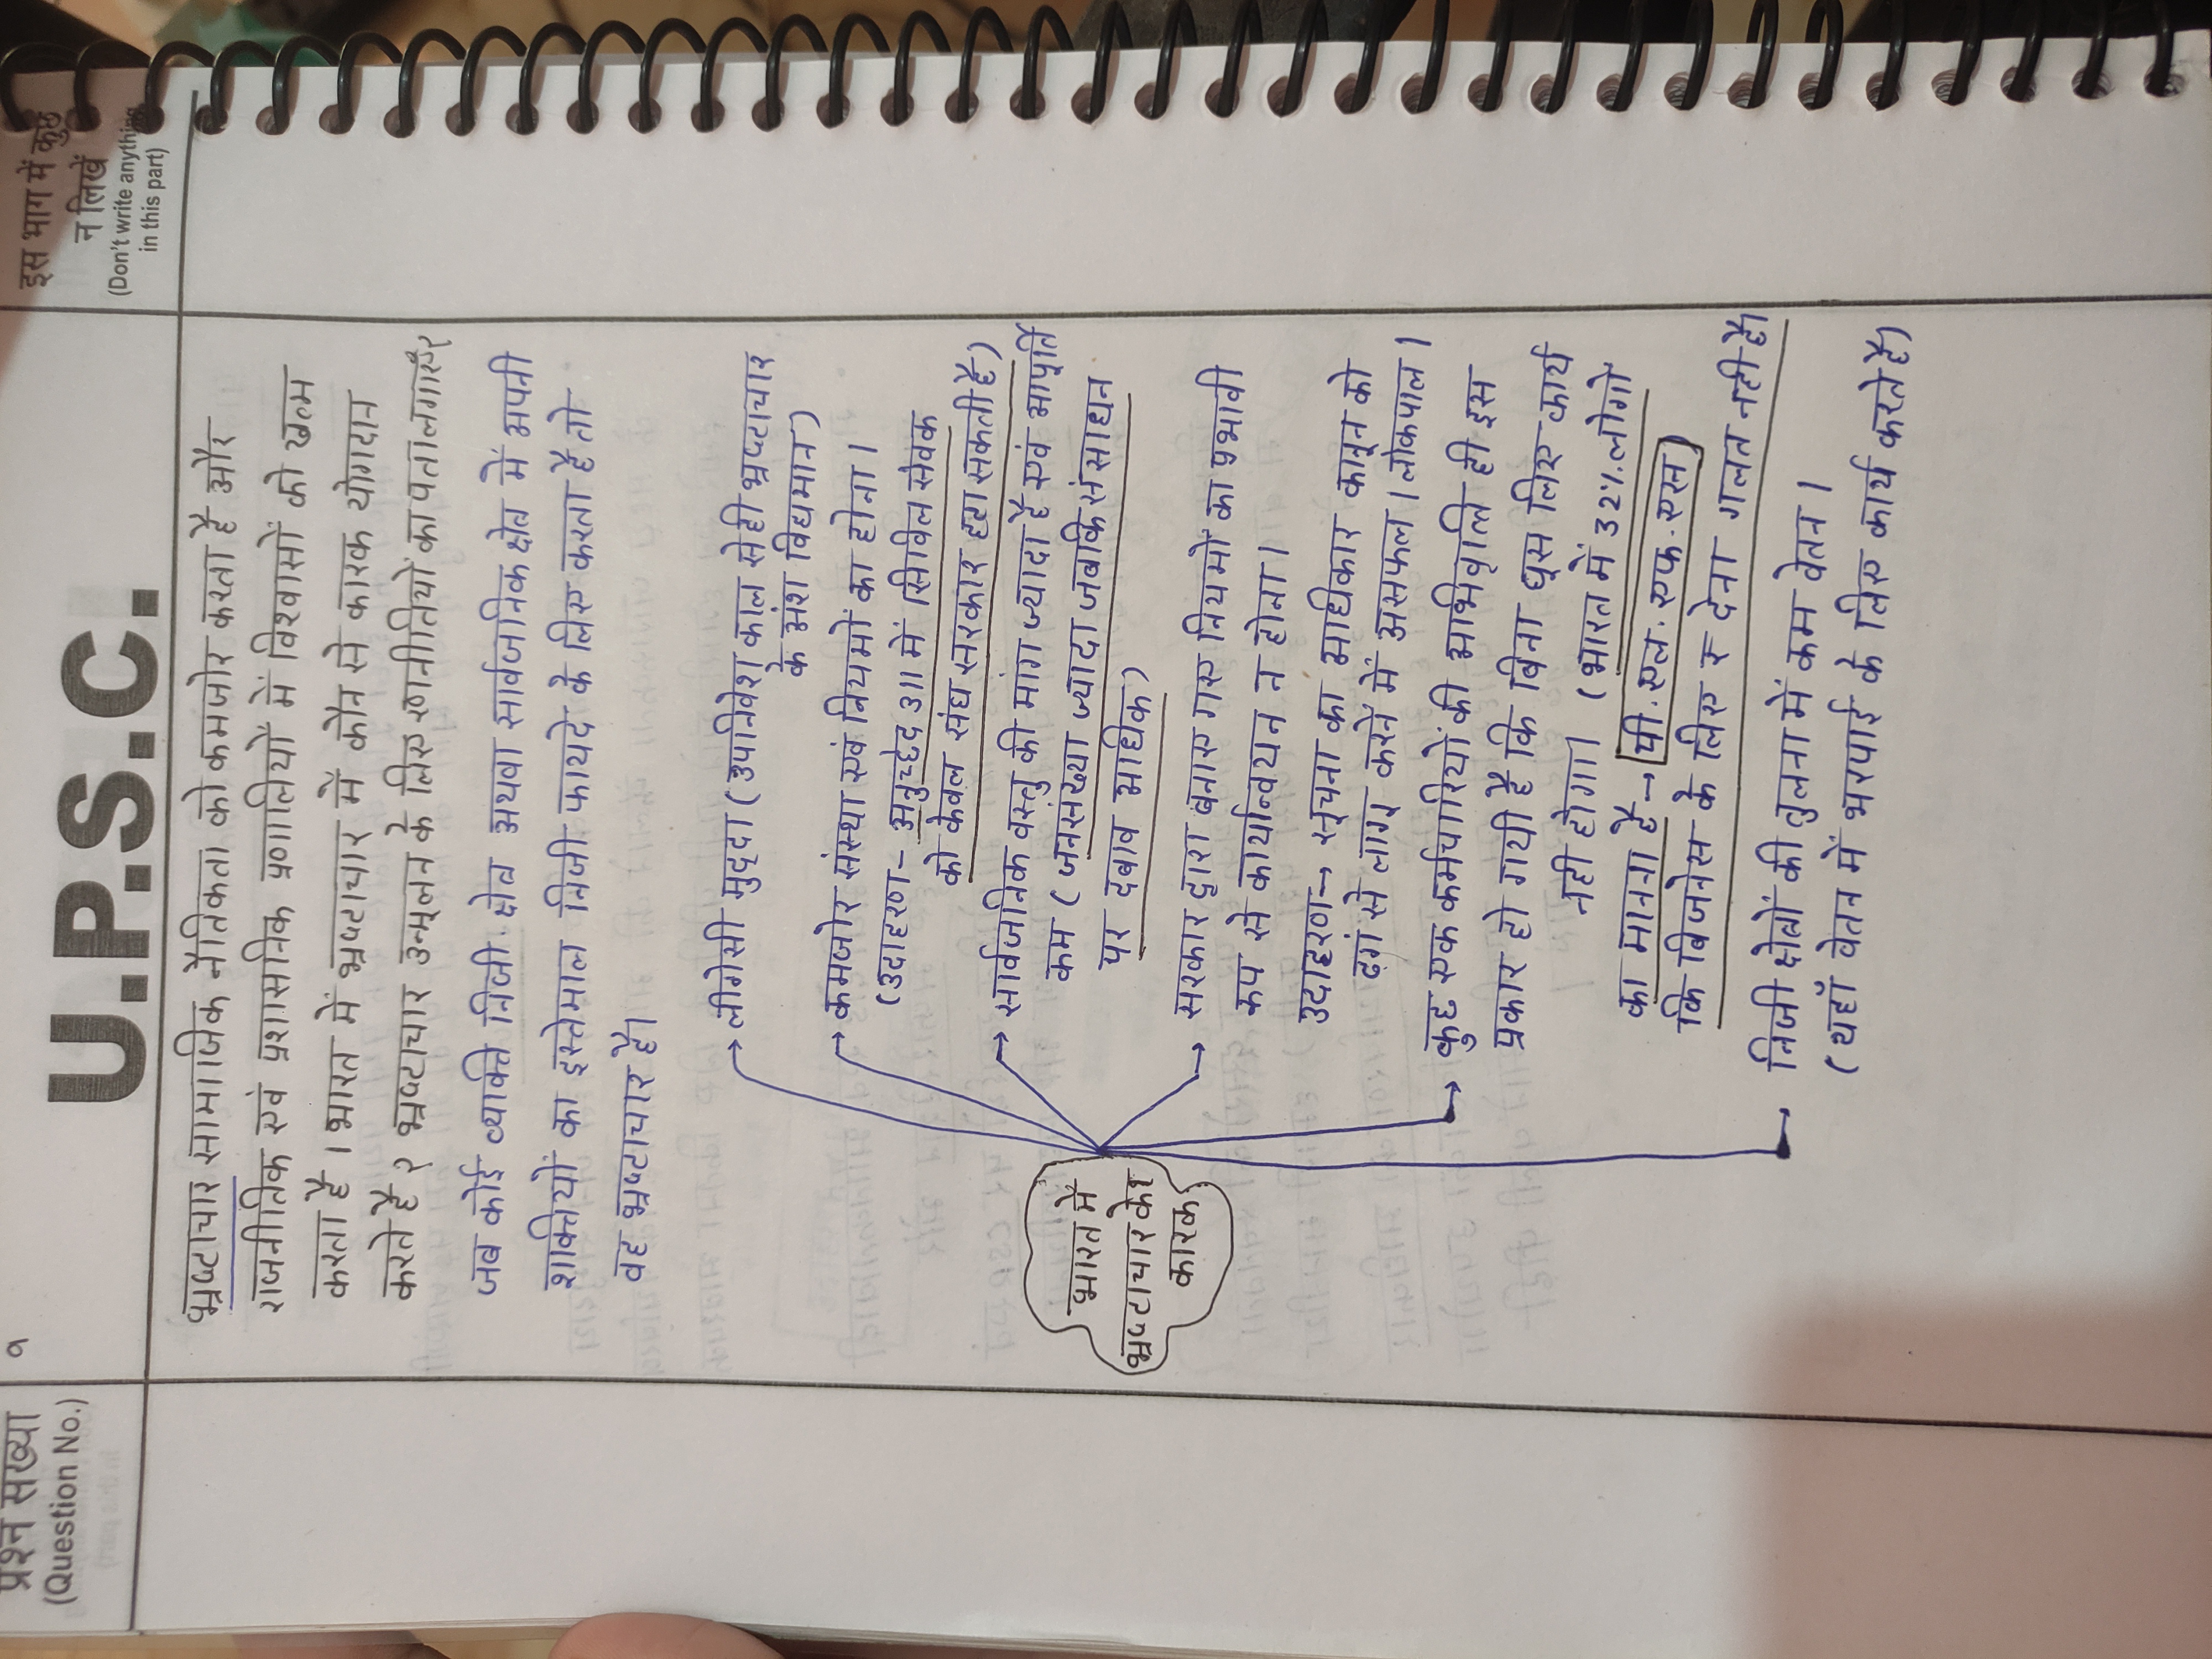 प्रश्न संख्या
(Question No.)
U.P.S.C.
इस भाग में कुछ
न लिखें
(Don't write anything
in this part)
भ्रष्टाचार सामाजिक नैतिकता को कमजोर करता है और
राजनीतिक एवं प्रशासनिक प्रणालियों में विश्वासों को खत्म
करता है । भारत में भ्रष्टाचार में कौन से कारक योगदान
करते है ? भ्रष्टाचार उन्मूलन के लिए रणनीतियों का पता लगाएँ?
जब कोई व्यक्ति निजी क्षेत्र अथवा सार्वजनिक क्षेत्र में अपनी
शक्तियों का इस्तेमाल निजी फायदे के लिए करता है तो
वह भ्रष्टाचार है।
भारत में
भ्रष्टाचार के
कारक
→ लीगेसी मुद्दा (उपनिवेश काल से ही भ्रष्टाचार
के अंश विद्यमान)
→ कमजोर संस्था एवं नियमों का होना ।
(उदाहरण- अनुच्छेद 311 में सिविल सेवक
को केवल संघ सरकार हटा सकती है)
→ सार्वजनिक वस्तु की मांग ज्यादा है एवं आपूर्ति
कम (जनसंख्या ज्यादा जबकि संसाधन
पर दबाव अधिक)
→ सरकार द्वारा बनाए गए नियमों का प्रभावी
रूप से कार्यान्वयन न होना ।
उदाहरण→ सूचना का अधिकार कानून को
ढगं से लागू करने में असफल । लोकपाल ।
→ कुछ एक कर्मचारियों की अभिवृत्ति ही इस
प्रकार हो गयी है कि बिना घूस लिए कार्य
नही होगा । (भारत में 32% लोगो
का मानना है → पी. एल. एफ. एस)
कि बिजनेस के लिए रु देना गलत नही है।
→ निजी क्षेत्रों की तुलना में कम वेतन ।
(यहाँ वेतन में भरपाई के लिए कार्य करते है)